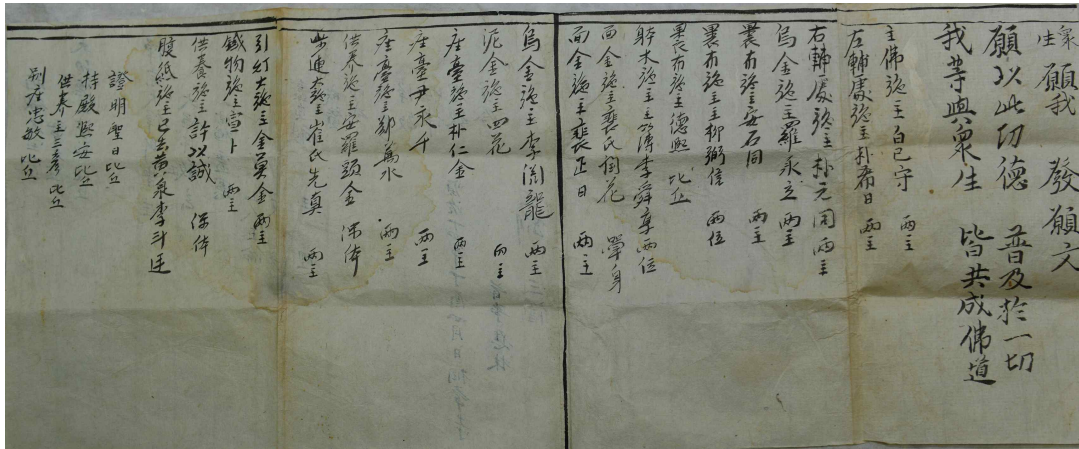 衆生 願我 發願文
願以此切德 普及於一切
我等與衆生 皆共成佛道
主佛施主白已守 兩主
左輔處施主朴希日 兩主
右輔處施主朴元同 兩主
烏金施主羅永立 兩主
裹布施主安石同 兩主
裏布施主柳弼信 兩位
裹衣布施主德熙 比丘
躰木施主李舜享兩位
面金施主裵氏個花 單身
面金施主裵正日 兩主
烏金施主李閏龍 兩主
泥金施主四花 兩主
座臺施主朴仁金 兩主
座臺尹永千 兩主
座臺施主鄭萬水 兩主
供养施主安羅頭金 保体
崔氏先真 兩主
引灯大施主金莫金 兩主
鐵物施主宣卜 兩主
供養施主許以誠 保体
腹紙施主 黃 李斗廷
證明聖日比丘
持殿熙安比丘
供养主三彦比丘
別座忠敏 比丘